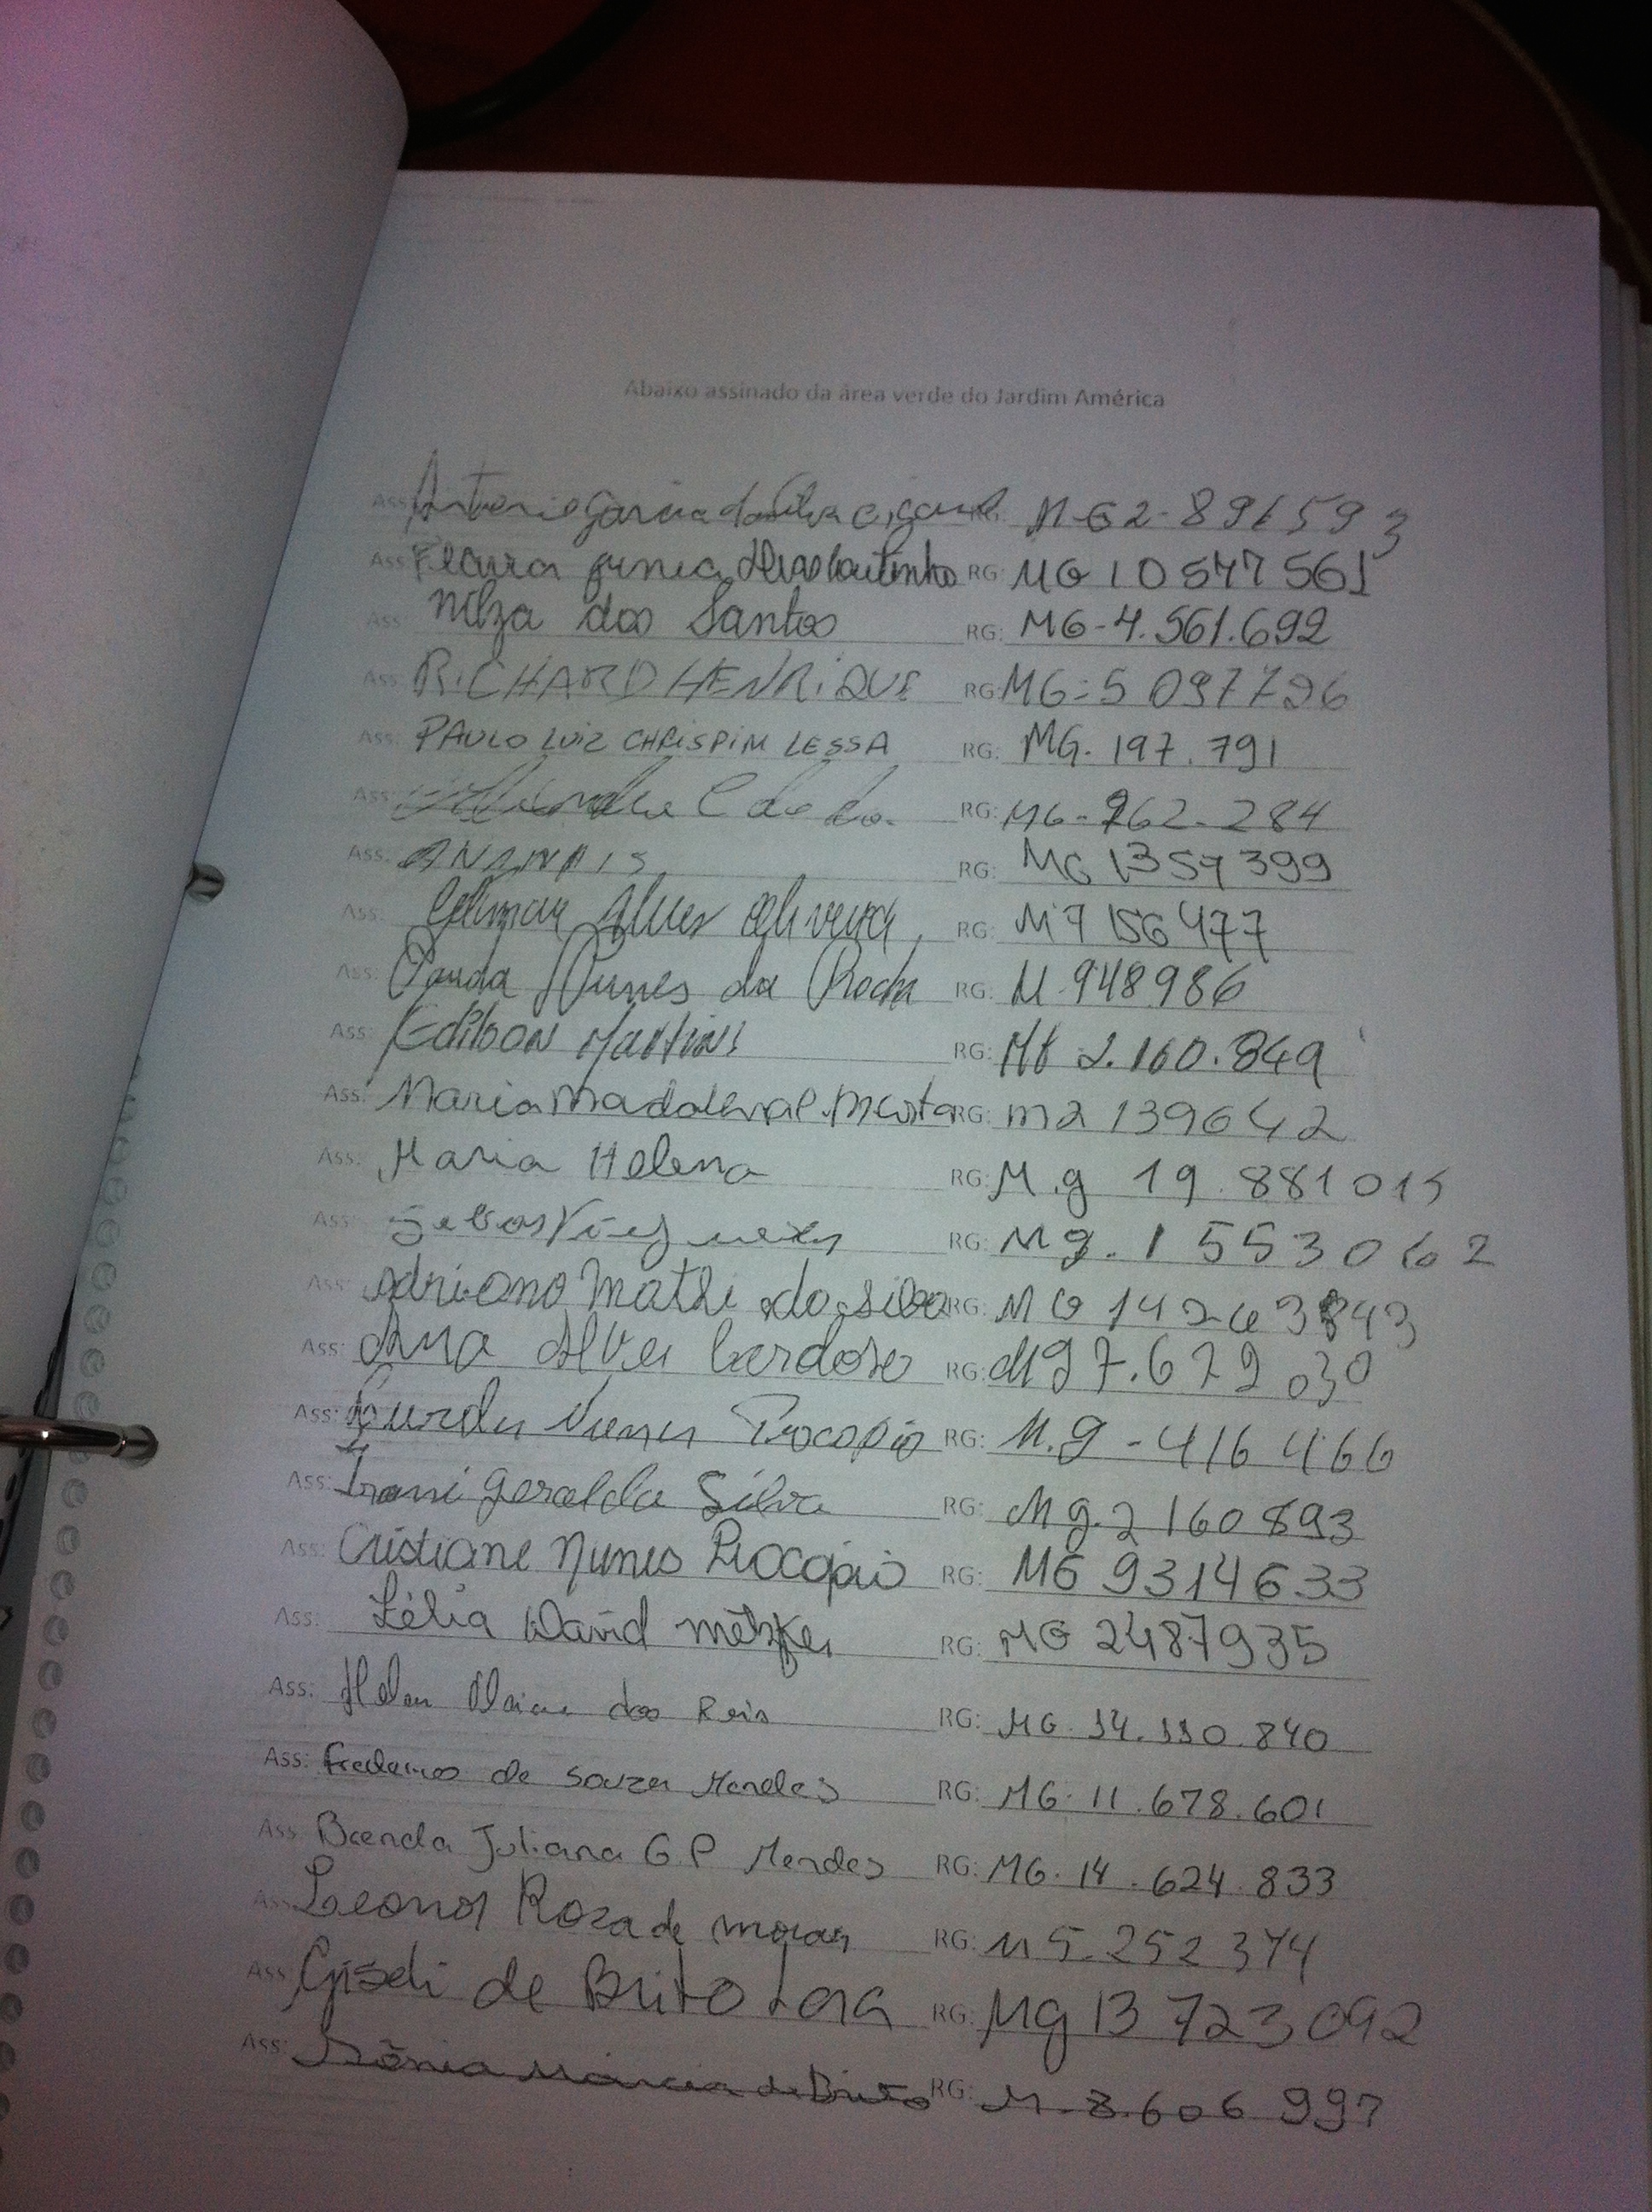 Abaixo assinado da área verde do Jardim América
Ass: Antonio Garcia da Silva RG: MG2-8961593
Ass: Junia Coutinho RG: MG 10547561
Ass: Nilza dos Santos RG: MG-4.561.692
Ass: RICHARD HENRIQUE RG: MG-5 097796
Ass: PAULO LUIZ CHRISPIM LESSA RG: MG. 197.791
Ass: RG: MG-962-284
Ass: RG: MG 1357399
Ass: Gilmar Alves Oliveira RG: M7 156 477
Ass: Nunes da Rocha RG: M 948986
Ass: Edilson Martins RG: 2.160.849
Ass: Maria RG: M2 139642
Ass: Maria Helena RG: M.g 19.881015
Ass: RG: Mg. 1553062
Ass: Adriano da Silva RG: MG
Ass: Ana Alves Cardoso RG: Mg 7.679 030
Ass: Nunes Procopio RG: M.g - 416466
Ass: Irani Geralda Silva RG: Mg.2160893
Ass: Cristiane Nunes Procópio RG: MG 9314633
Ass: Lélia David Metzker RG: MG 2487935
Ass: Helen dos Reis RG: MG.14.110.840
Ass: Frederico de Souza Mendes RG: MG.11.678.601
Ass: Brenda Juliana G.P Mendes RG: MG.14.624.833
Ass: Leonor Roza de Morais RG: M5.252374
Ass: Giseli de Brito Lara RG: Mg 13 723092
Ass: Sônia Márcia de Brito RG: M.8.606997